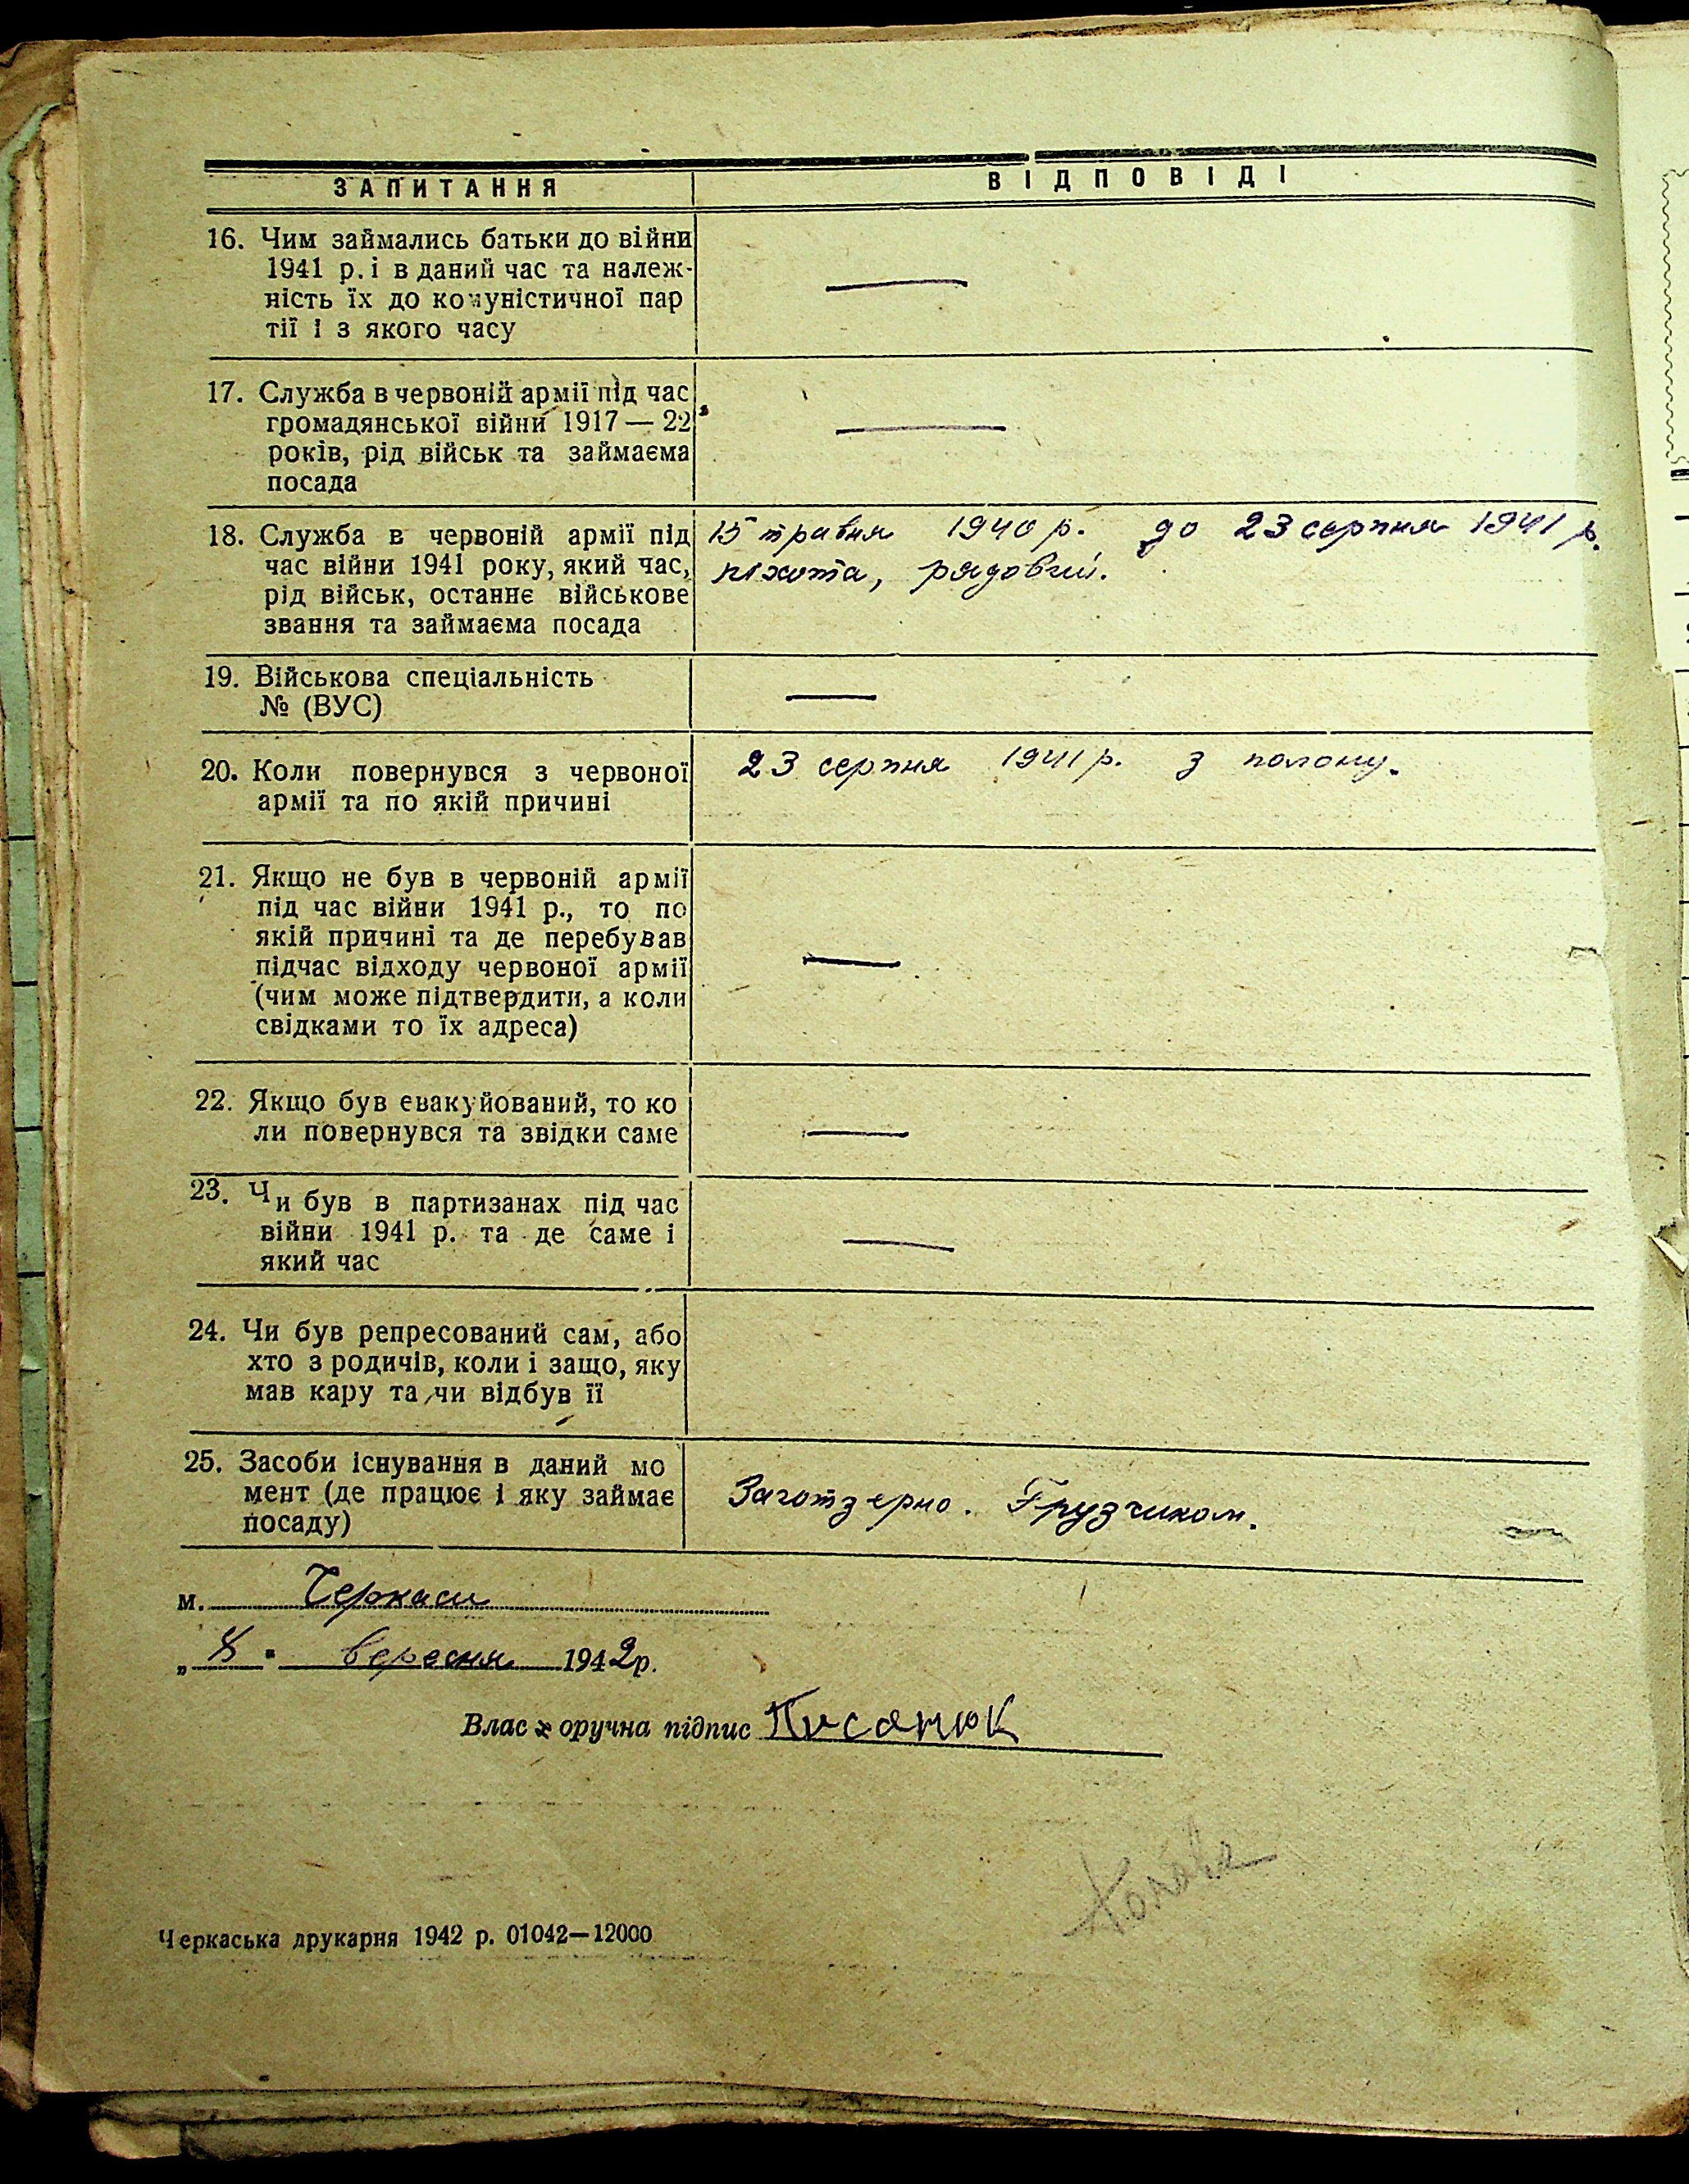 ЗАПИТАННЯ ВІДПОВІДІ
16. Чим займались батьки до війни
1941 р. і в даний час та належ-
ність їх до комуністичної пар
тії і з якого часу
17. Служба в червоній армії під час
громадянської війни 1917 — 22
років, рід військ та займаєма
посада
18. Служба в червоній армії під
час війни 1941 року, який час,
рід військ, останнє військове
звання та займаєма посада
15 травня 1940 р. до 23 серпня 1941 р.
піхота, рядовий.
19. Військова спеціальність
№ (ВУС)
20. Коли повернувся з червоної
армії та по якій причині
23 серпня 1941 р. з полону.
21. Якщо не був в червоній армії
під час війни 1941 р., то по
якій причині та де перебував
підчас відходу червоної армії
(чим може підтвердити, а коли
свідками то їх адреса)
22. Якщо був евакуйований, то ко
ли повернувся та звідки саме
23. Чи був в партизанах під час
війни 1941 р. та де саме і
який час
24. Чи був репресований сам, або
хто з родичів, коли і защо, яку
мав кару та чи відбув її
25. Засоби існування в даний мо
мент (де працює і яку займає
посаду)
Заготзерно. Грузчиком.
м. Черкаси
„8" вересня 1942 р.
Власноручна підпис Писанюк
Черкаська друкарня 1942 р. 01042—12000